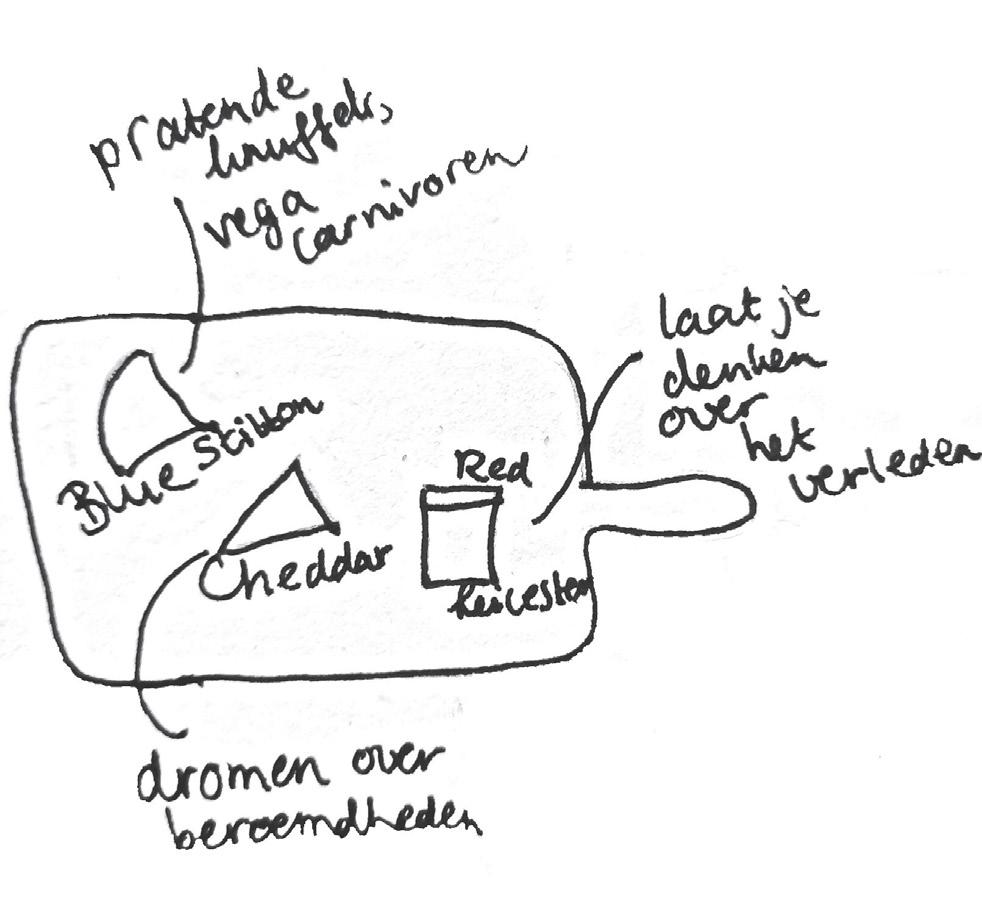 pratende
knuffels,
vega
carnivoren
laat je
denken
over
het
verleden
Blue Stilton
Cheddar
Red
Leicester
dromen over
beroemdheden